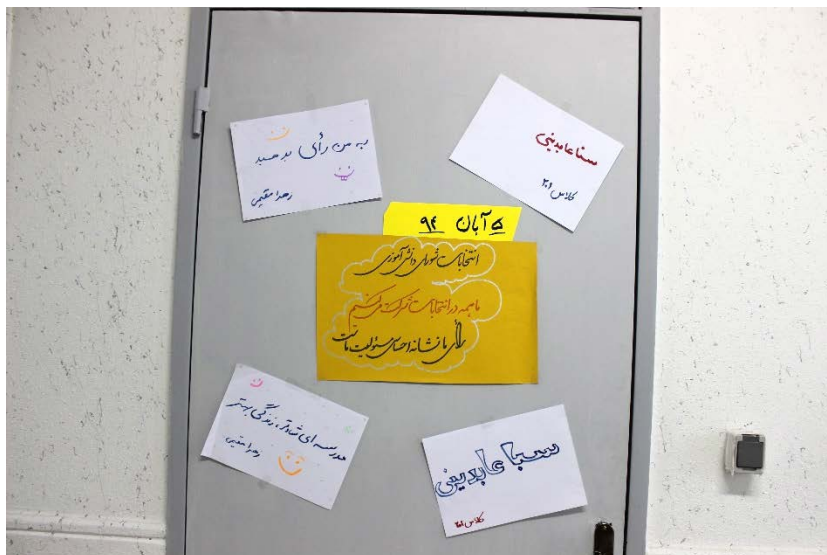 به من رأی بدهید
زهرا مقیمی
سبا عابدینی
کلاس ۲۰۱
۵ آبان ۹۴
انتخابات شورای دانش آموزی
ما همه در انتخابات شرکت می کنیم
رأی ما نشانه احساس مسئولیت ماست
مدرسه ای شادتر، زندگی بهتر
زهرا مقیمی
سبا عابدینی
کلاس ۲۰۱